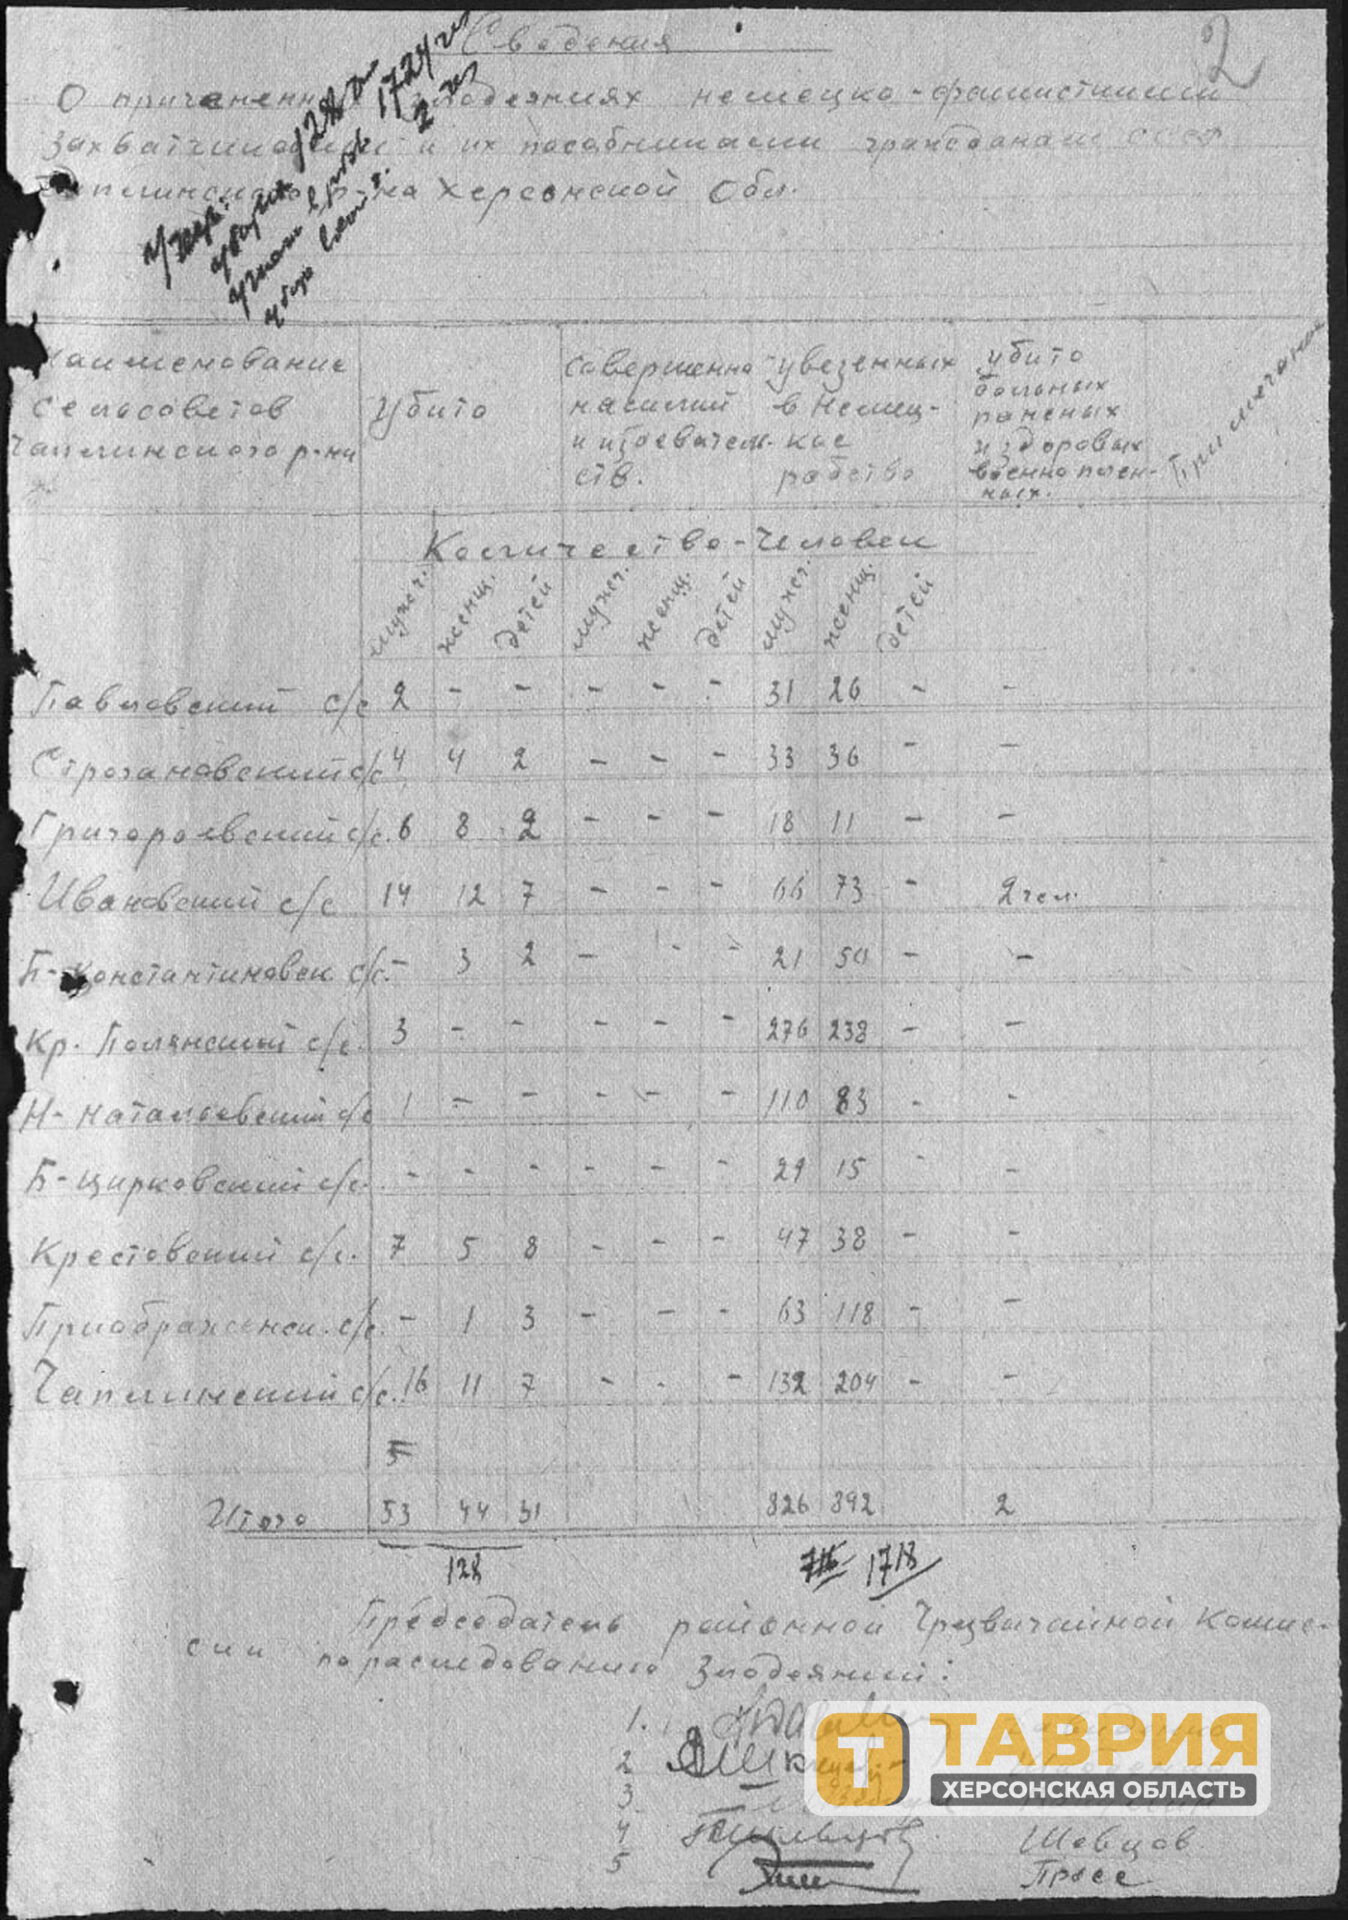 2
Сведения
О причененных злодеяниях немецко-фашистскими
захватчиками и их пособниками гражданам СССР
Чаплинского р-на Херсонской Обл.
128
1724
2
Наименование сельсоветов Чаплинского р-на | Убито | совершенно насилий и издевательств. | увезенных в немецкое рабство | убито больных раненых и здоровых военнопленных. | Примечание
Количество-Человек
мужч. женщ. детей мужч. женщ. детей мужч. женщ. детей
Павловский с/с 2 - - - - - 31 26 - -
Строгановский с/с 4 4 2 - - - 33 36 - -
Григороевский с/с. 6 8 2 - - - 18 11 - -
Ивановский с/с 14 12 7 - - - 66 73 - 2 чел.
Б-Константиновск с/с. - 3 2 - - - 21 50 - -
Кр. Полянский с/с. 3 - - - - - 276 238 - -
Н-Натальевский с/с 1 - - - - - 110 83 - -
Б-Цирковский с/с. - - - - - - 29 15 - -
Крестовский с/с. 7 5 8 - - - 47 38 - -
Приображенск. с/с. - 1 3 - - - 63 118 - -
Чаплинский с/с. 16 11 7 - - - 132 204 - -
5
Итого 53 44 31 826 892 2
128 1718
Председатель районной Чрезвычайной Комис-
сии по расследованию Злодеяний:
1.
2
3
4 Шевцов
5 Просс
Т ТАВРИЯ
ХЕРСОНСКАЯ ОБЛАСТЬ